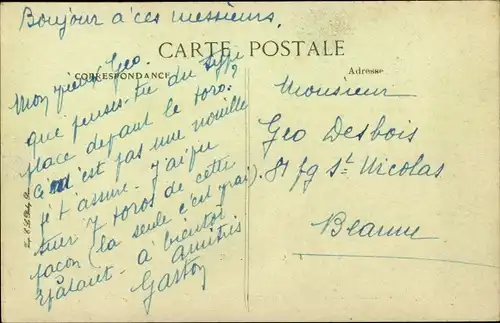 Bonjour à ces messieurs.
CARTE POSTALE
CORRESPONDANCE
Adresse
Mon vieux Geo.
que penses-tu du type
place devant le toro.
Ce n'est pas une nouille
je t'assure - j'ai pu
tuer 7 toros de cette
façon (la seule c'est vrai).
Epatant - à bientôt
Amitiés
Gaston
Monsieur
Geo Desbois
81 fg St Nicolas
Beaune